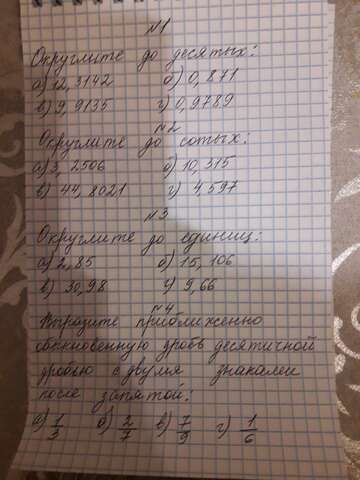 №1
Округлите до десятых:
а) 12,3142 б) 0,871
в) 9,9135 г) 0,9789
№2
Округлите до сотых:
а) 3,2506 б) 10,315
в) 44,8021 г) 4,597
№3
Округлите до единиц:
а) 2,85 б) 15,106
в) 30,98 г) 9,66
№4
Выразите приближенно
обыкновенную дробь десятичной
дробью с двумя знаками
после запятой:
а) 1/3 б) 2/7 в) 7/9 г) 1/6